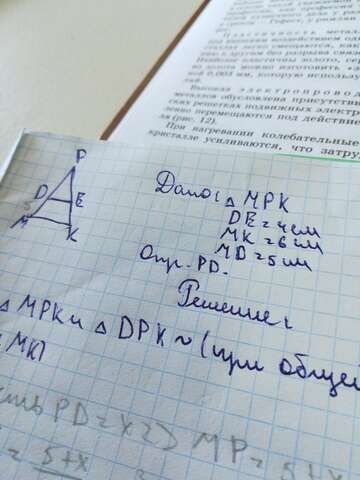 Пластичность метал
при внешнем воздействием од
сталле легко смещаются, как
но к другом без разрыва связе
Наиболее пластичны золото, сере
но золота можно изготовить
ной 0,003 мм, которую использу
лий.
Высокая электропровод
металлов обусловлена присутств
ских решетках подвижных электро
ленно перемещаются под действие
ля (рис. 12).
При нагревании колебательные
кристалле усиливаются, что затру
P
D E
5
M K
Дано: △ MPK
DE = 4 см
MK = 6 см
MD = 5 см
Опр. PD.
Решение:
△ MPK и △ DPK ~ (при общей
MK)
PD = x => MP = 5+x
= 5+x